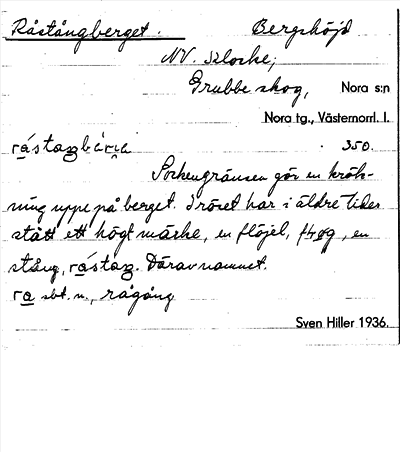 Råstångberget. Bergshöjd
NV. Klocke,
Grubbe skog, Nora s:n
Nora tg., Västernorrl. l.
råstaŋbærjə 350.
Sockengränsen gör en krök-
ning uppe på berget. I röset har i äldre tider
stått ett högt märke, en flöjel, fløg, en
stång, råstaŋ. Därav namnet.
ra sbt. n., rågång
Sven Hiller 1936.